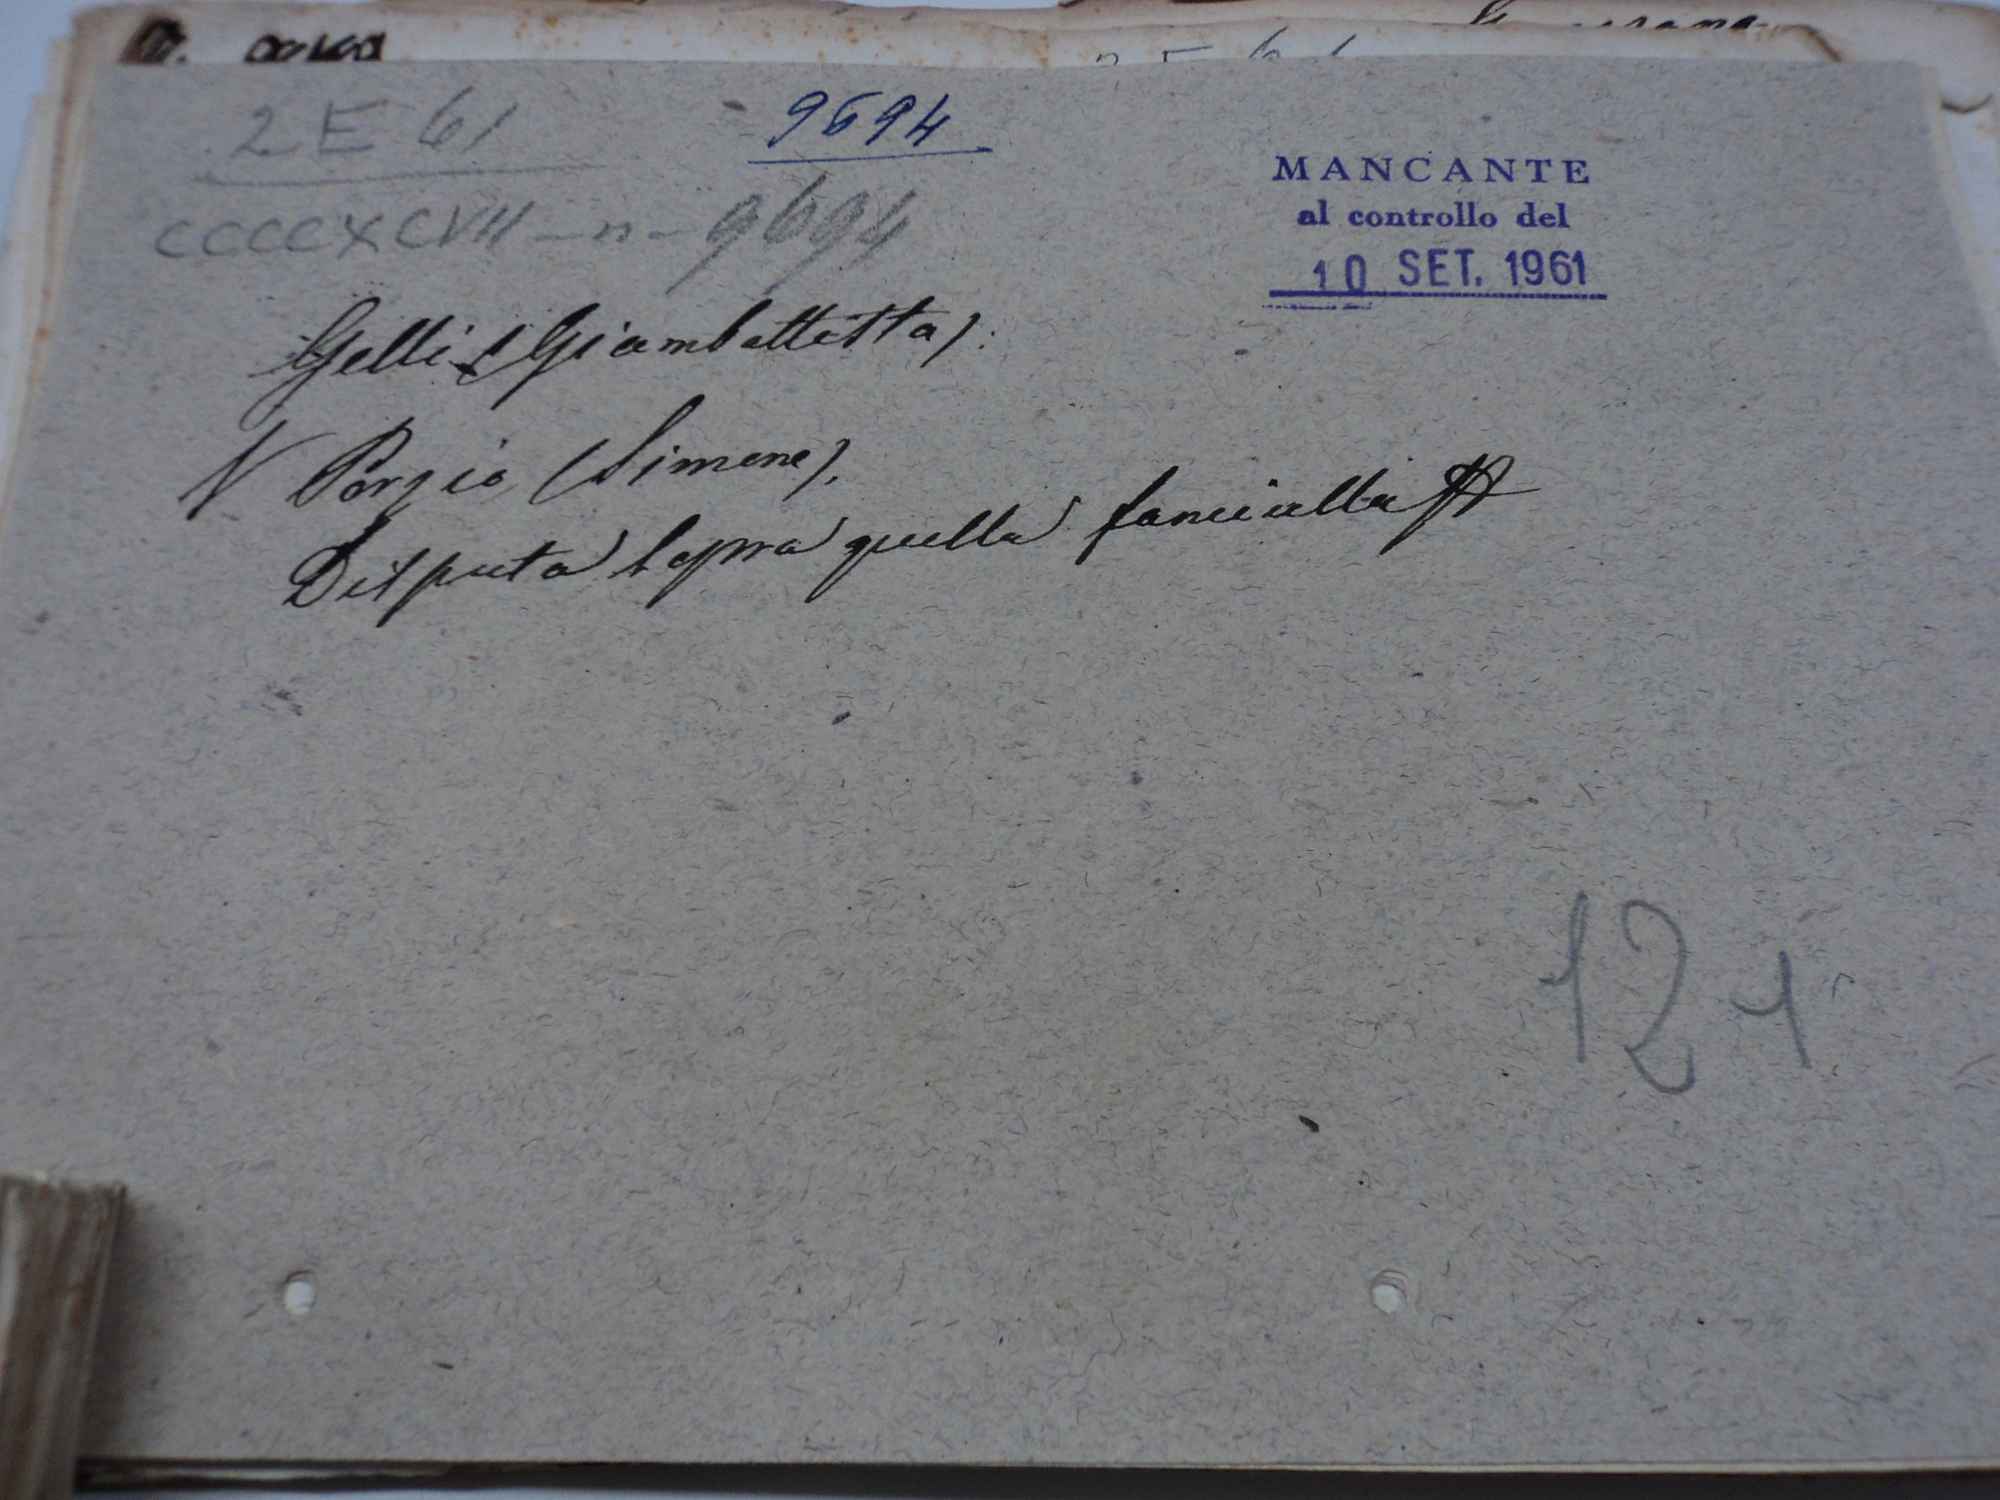 2 E 61
9694
MANCANTE
al controllo del
10 SET. 1961
CCCCXCVII - n - 9694
Gelli (Giambattista).
V Porzio (Simone).
Disputa sopra quella fanciulla
121